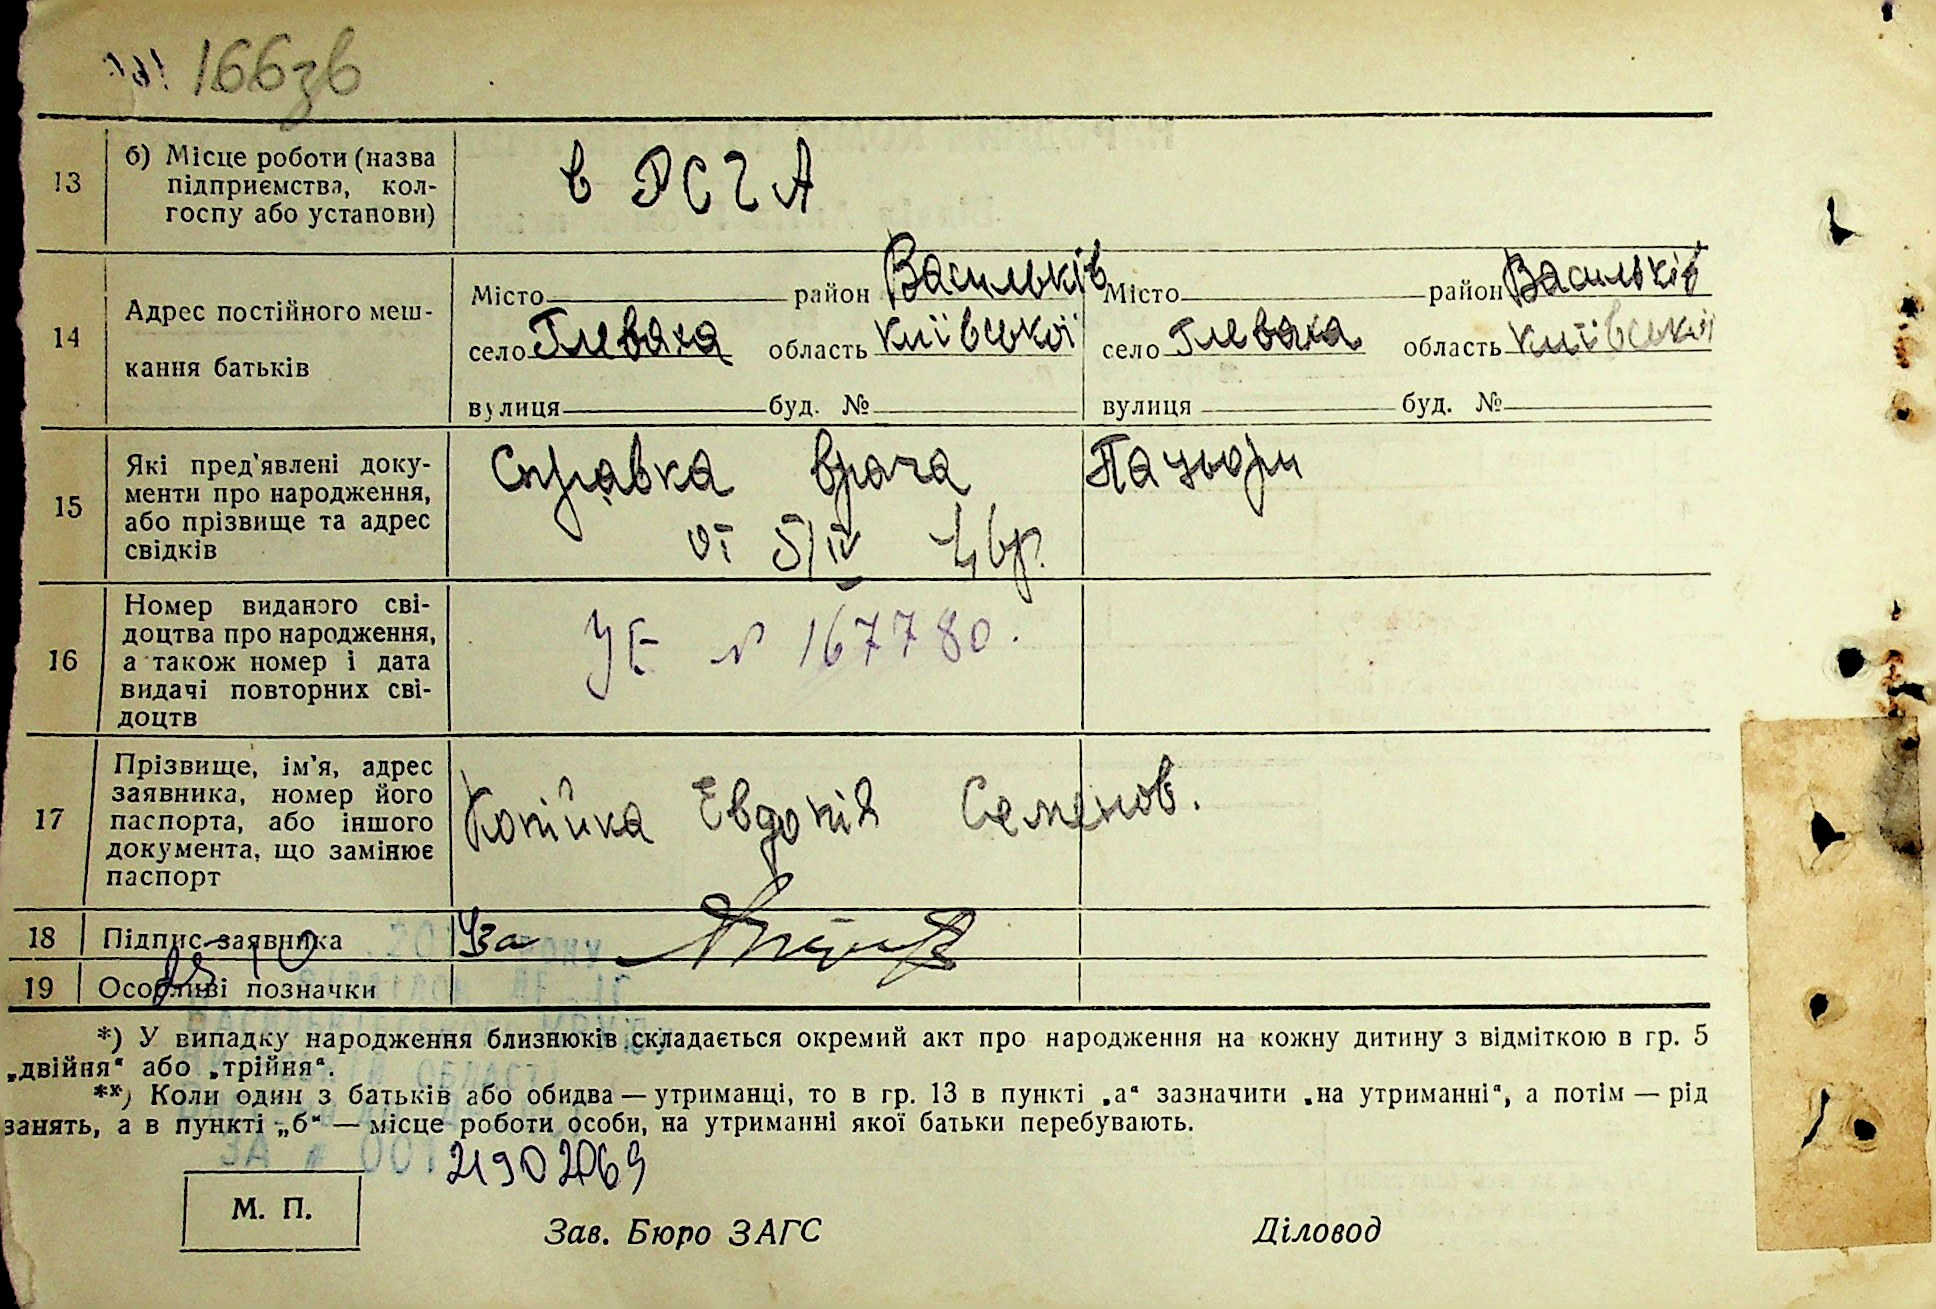 166зв
13
б) Місце роботи (назва
підприємства, кол-
госпу або установи)
в РСЧА
14
Адрес постійного меш-
кання батьків
Місто район Васильків
село Глеваха область Київської
вулиця буд. №
Місто район Васильків
село Глеваха область Київської
вулиця буд. №
15
Які пред'явлені доку-
менти про народження,
або прізвище та адрес
свідків
Справка врача
ві 5/IV
16
Номер виданого сві-
доцтва про народження,
а також номер і дата
видачі повторних сві-
доцтв
УЕ № 167780.
17
Прізвище, ім'я, адрес
заявника, номер його
паспорта, або іншого
документа, що замінює
паспорт
Копійка Евдокія Семенов.
18
Підпис заявника
За
19
Особливі позначки
*) У випадку народження близнюків складається окремий акт про народження на кожну дитину з відміткою в гр. 5
„двійня“ або „трійня“.
**) Коли один з батьків або обидва — утриманці, то в гр. 13 в пункті „а“ зазначити „на утриманні“, а потім — рід
занять, а в пункті „б“ — місце роботи особи, на утриманні якої батьки перебувають.
21902069
М. П.
Зав. Бюро ЗАГС
Діловод